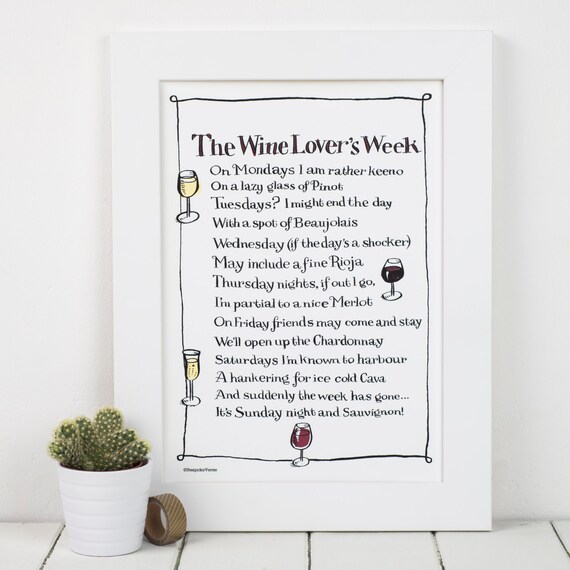 The Wine Lover's Week
On Mondays I am rather keeno
On a lazy glass of Pinot
Tuesdays? I might end the day
With a spot of Beaujolais
Wednesday (if the day's a shocker)
May include a fine Rioja
Thursday nights, if out I go,
I'm partial to a nice Merlot
On Friday friends may come and stay
We'll open up the Chardonnay
Saturdays I'm known to harbour
A hankering for ice cold Cava
And suddenly the week has gone...
It's Sunday night and Sauvignon!
©Bespoke Verse